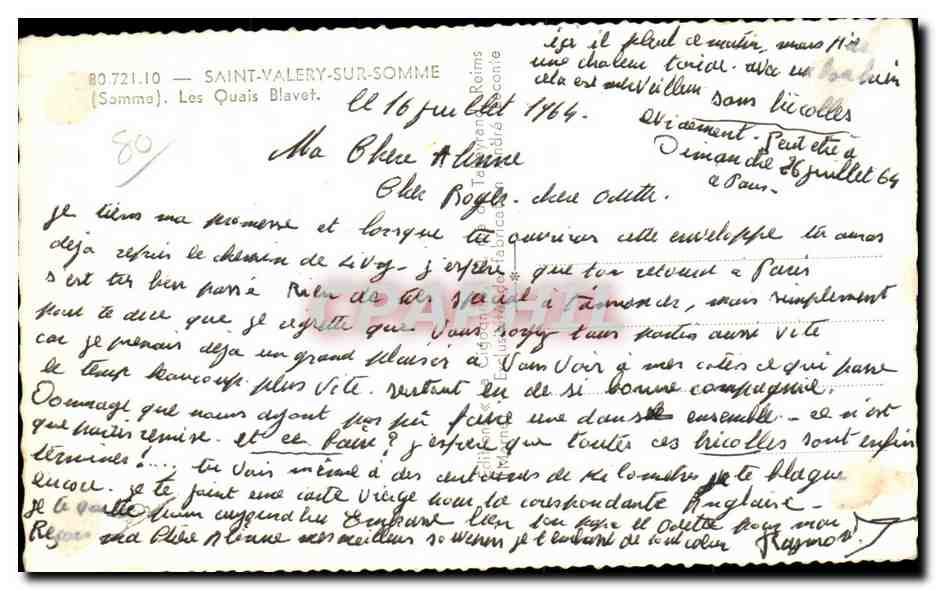 ici il pleut ce matin, mais
une chaleur torride. avec un
cela est merveilleux
sans bricolles
évidement. Peut être à
Dimanche 26 juillet 64
à Paris.
80.721.10 — SAINT-VALERY-SUR-SOMME
(Somme). Les Quais Blavet.
80
le 16 juillet 1964.
Ma Chère Alinne
Cher Roger. chere Odette.
je tiens ma promesse et lorsque tu ouvriras cette enveloppe tu auras
déja repris le chemin de Livry. j'espère que ton retour à Paris
s'est très bien passé Rien de très spécial à t'annoncer, mais simplement
pour te dire que je regrette que vous soyez tous partis aussi vite
car je prenais déja un grand plaisir à Vous Voir à mes cotés ce qui passe
le temps beaucoup plus vite. surtout en de si bonne compagnie.
Dommage que nous ayont pas pû faire une danse ensemble. ce n'est
que parties remise. et ce Paire? j'espère que toutes ces bricolles sont enfin
terminés!.... tu Vois même à des centaines de Kilomètres je te blague
encore. je te joint une carte Vierge pour ta corespondante Anglaise.
je te quitte pour aujourdhui Embrasse bien ton papa et Odette pour moi
Reçois ma Chère Alinne mes meilleurs souvenirs je t'embrasse de tout coeur Raymond
Editions "le Cigogne" de Talleyrand Reims
Exclusive fabrication André Leconte
CPAPHIL